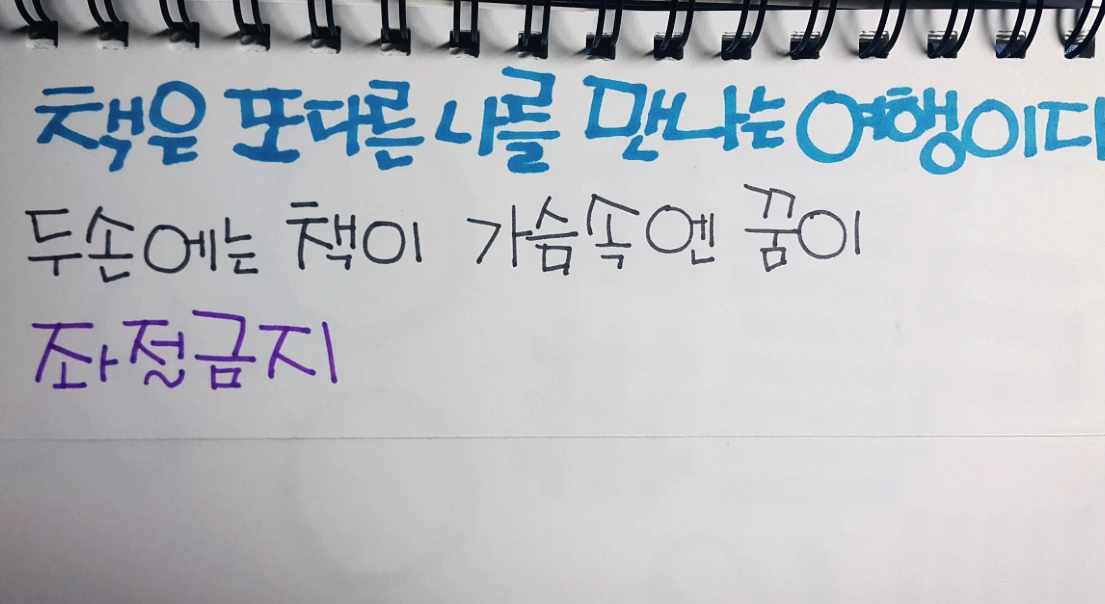 책은 또다른 나를 만나는 여행이다
두손에는 책이 가슴속엔 꿈이
좌절금지